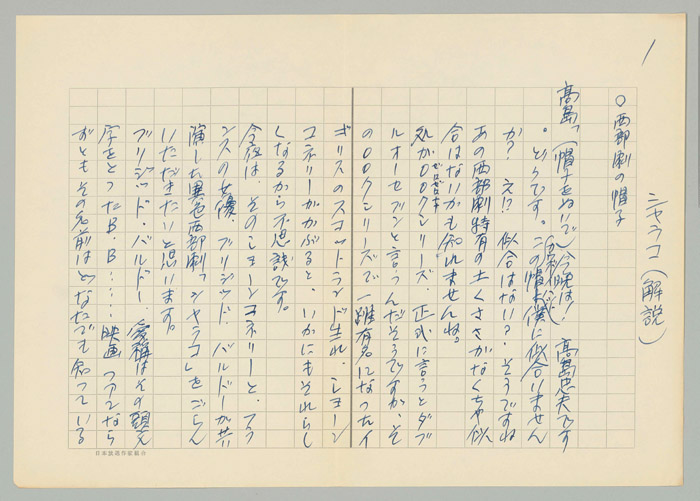 1
シャラコ(解説)
○西部劇の帽子
高島「(帽子をぬいで)今晩は! 高島忠夫です
。どうです。この帽子、僕に似合いません
か? え!? 似合はない? そうですね
あの西部劇特有の土くささがなくちゃ似
合はないかも知れませんね。
処が007シリーズ、正式に言うとダブ
ゼロゼロセブン
ルオーセブンと言うんだそうですが、そ
の007シリーズで一躍有名になったイ
ギリスのスコットランド生れ、ショーン
コネリーがかぶると、いかにもそれらし
くなるから不思議です。
今夜は、そのショーンコネリーと、フラ
ンスの女優、ブリジッド・バルドーが共
演した異色西部劇「シャラコ」をごらん
いただきたいと思います。
ブリジッド・バルドー、愛称はその頭文
字をとったB・B……映画ファンなら
ずともその名前はどなたでも知っている
日本放送作家組合